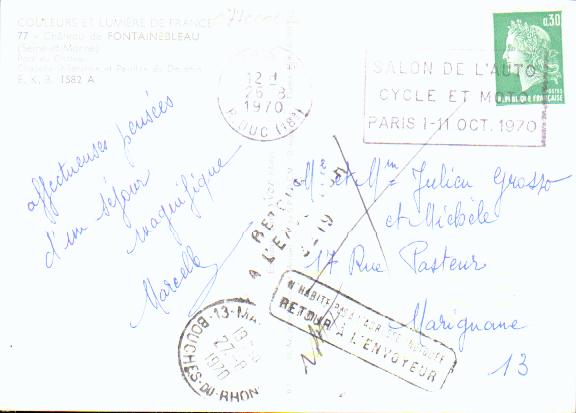 COULEURS ET LUMIÈRE DE FRANCE
77 - Château de FONTAINEBLEAU
(Seine-et-Marne)
Parc du Château
Chapelle St-Saturnin et Pavillon du Dauphin
E. K. B. 1582 A
12 H
26-8
1970
R. DUC (18e)
SALON DE L'AUTO
CYCLE ET MOTO
PARIS 1-11 OCT. 1970
0,30
POSTES
REPUBLIQUE FRANCAISE
affectueuses pensées
d'un séjour
magnifique
Marcelle
Mr et Mme Julien Grosso
et Michèle
17 Rue Pasteur
Marignane
13
RETOUR
A L'ENVOYEUR
N'HABITE PAS A L'ADRESSE INDIQUÉE
RETOUR A L'ENVOYEUR
13-MA
27-8
1970
BOUCHES-DU-RHON